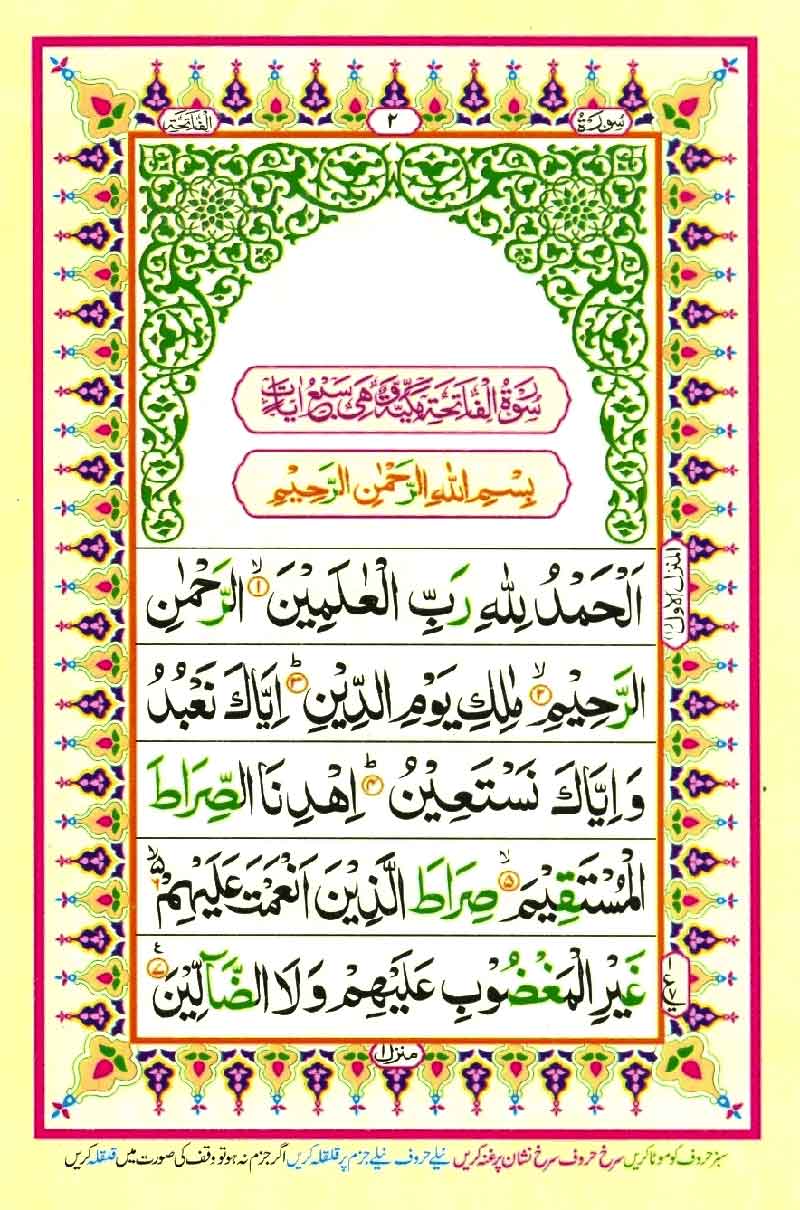 سُوْرَة
٢
الفَاتِحَة
سُوْرَةُ الْفَاتِحَةِ مَكِّيَّةٌ وَّهِىَ سَبْعُ اٰيَاتٍ
بِسْمِ اللّٰهِ الرَّحْمٰنِ الرَّحِيْمِ
اَلْحَمْدُ لِلّٰهِ رَبِّ الْعٰلَمِيْنَ ۙ﴿۱﴾ الرَّحْمٰنِ
الرَّحِيْمِ ۙ﴿۲﴾ مٰلِكِ يَوْمِ الدِّيْنِ ؕ﴿۳﴾ اِيَّاكَ نَعْبُدُ
وَ اِيَّاكَ نَسْتَعِيْنُ ؕ﴿۴﴾ اِهْدِنَا الصِّرَاطَ
الْمُسْتَقِيْمَ ۙ﴿۵﴾ صِرَاطَ الَّذِيْنَ اَنْعَمْتَ عَلَيْهِمْ ۙ۵﴿۶﴾
غَيْرِ الْمَغْضُوْبِ عَلَيْهِمْ وَ لَا الضَّآلِّيْنَ ﴿۷﴾
المنزل الاول
منزل ۱
سبز حروف کو موٹا کریں سرخ حروف سرخ نشان پر غنہ کریں نیلے حروف نیلے جزم پر قلقلہ کریں اگر جزم نہ ہو تو وقف کی صورت میں قلقلہ کریں